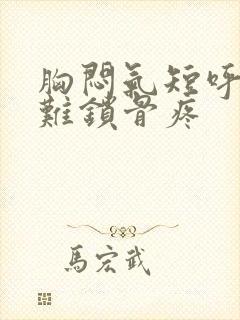 胸悶氣短呼
難鎖骨疼
馬宏武